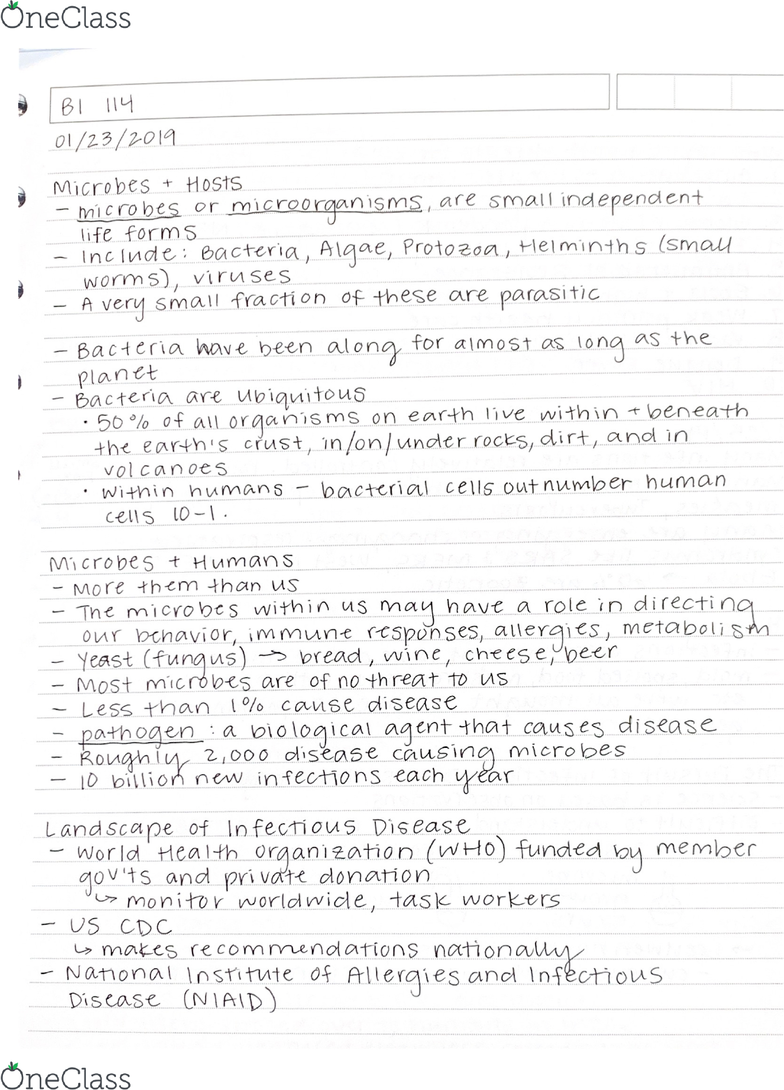 OneClass
BI 114
01/23/2019
Microbes + Hosts
- microbes or microorganisms, are small independent
life forms
- Include: Bacteria, Algae, Protozoa, Helminths (small
worms), viruses
- A very small fraction of these are parasitic
- Bacteria have been along for almost as long as the
planet
- Bacteria are Ubiquitous
· 50% of all organisms on earth live within + beneath
the earth's crust, in/on/under rocks, dirt, and in
volcanoes
· Within humans - bacterial cells outnumber human
cells 10-1.
Microbes + Humans
- More them than us
- The microbes within us may have a role in directing
our behavior, immune responses, allergies, metabolism
- Yeast (fungus) → bread, wine, cheese, beer
- Most microbes are of no threat to us
- Less than 1% cause disease
- pathogen: a biological agent that causes disease
- Roughly 2,000 disease causing microbes
- 10 billion new infections each year
Landscape of Infectious Disease
- World Health Organization (WHO) funded by member
gov'ts and private donation
↳ monitor worldwide, task workers
- US CDC
↳ makes recommendations nationally
- National Institute of Allergies and Infectious
Disease (NIAID)
OneClass